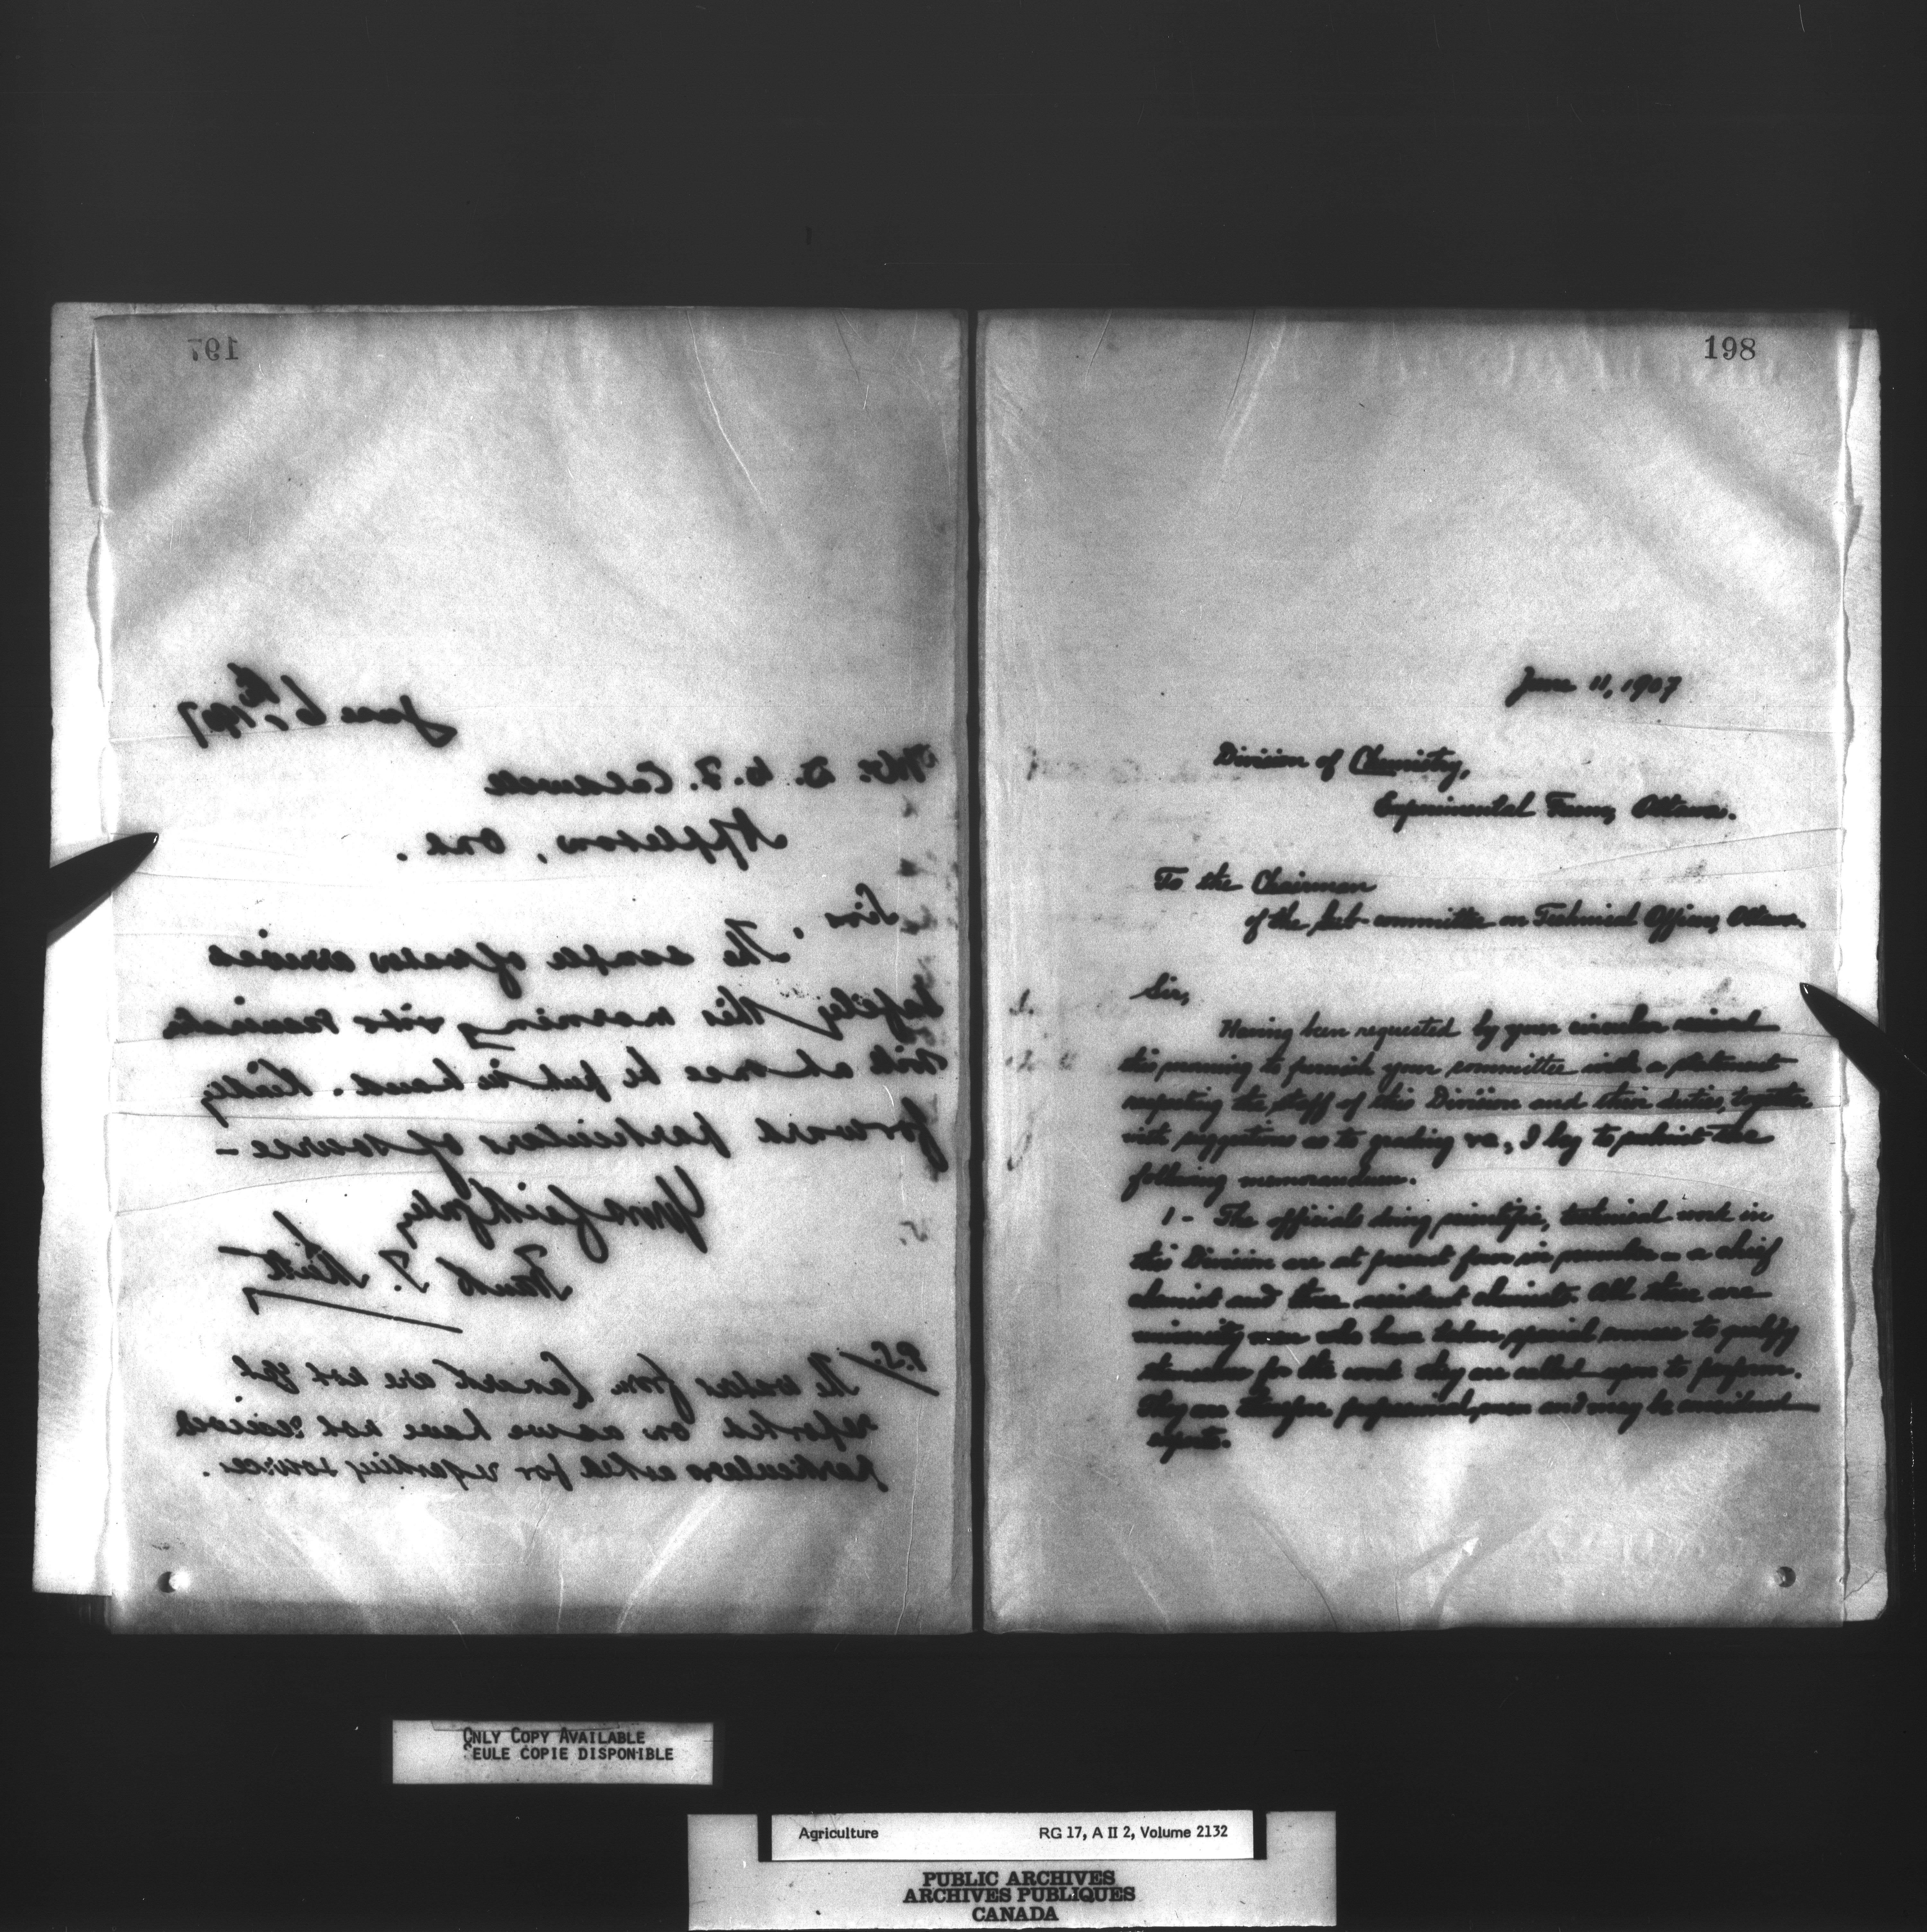 197
June 6th, 1907
Mr. D. C. F. Caldwell
Appleton, Ont.
Sir,
The sample of water arrived
safely this morning and
will at once be put in hand. Kindly
forward particulars of source —
Yours faithfully
Frank T. Shutt
P.S. The waters from Lanark are not yet
reported on as we have not received
particulars asked for regarding source.
198
June 11, 1907
Division of Chemistry,
Experimental Farm, Ottawa.
To the Chairman
of the sub-committee on Technical Officers, Ottawa.
Sir,
Having been requested by your circular received
this morning to furnish your committee with a statement
respecting the staff of this Division and their duties, together
with suggestions as to grading &c, I beg to submit the
following memorandum.
1 - The officials doing scientific, technical work in
this Division are at present four in number - a chief
chemist and three assistant chemists. All these are
university men who have taken special courses to qualify
themselves for the work they are called upon to perform.
They are therefore professional men and may be considered
experts.
ONLY COPY AVAILABLE
SEULE COPIE DISPONIBLE
Agriculture RG 17, A II 2, Volume 2132
PUBLIC ARCHIVES
ARCHIVES PUBLIQUES
CANADA